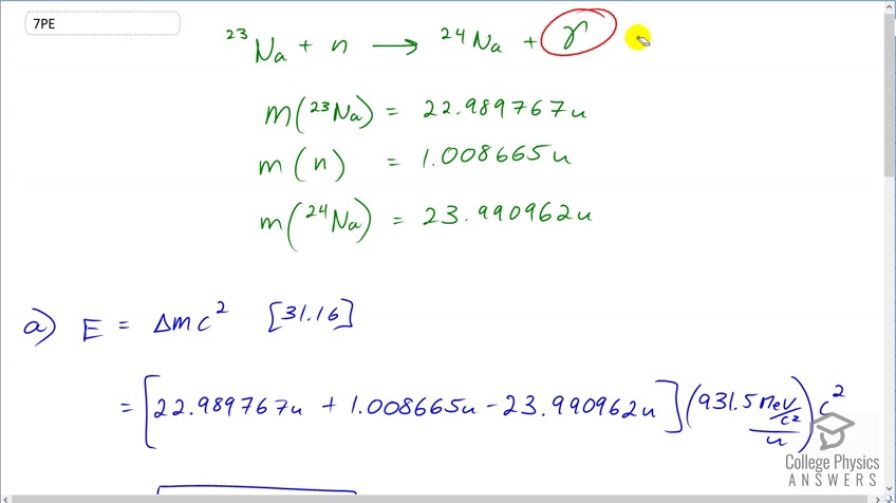 7PE
²³Na + n → ²⁴Na + γ
m(²³Na) = 22.989767u
m(n) = 1.008665u
m(²⁴Na) = 23.990962u
a) E = Δmc² [31.16]
= [22.989767u + 1.008665u - 23.990962u] (931.5 MeV/c²/u) c²
College Physics
ANSWERS